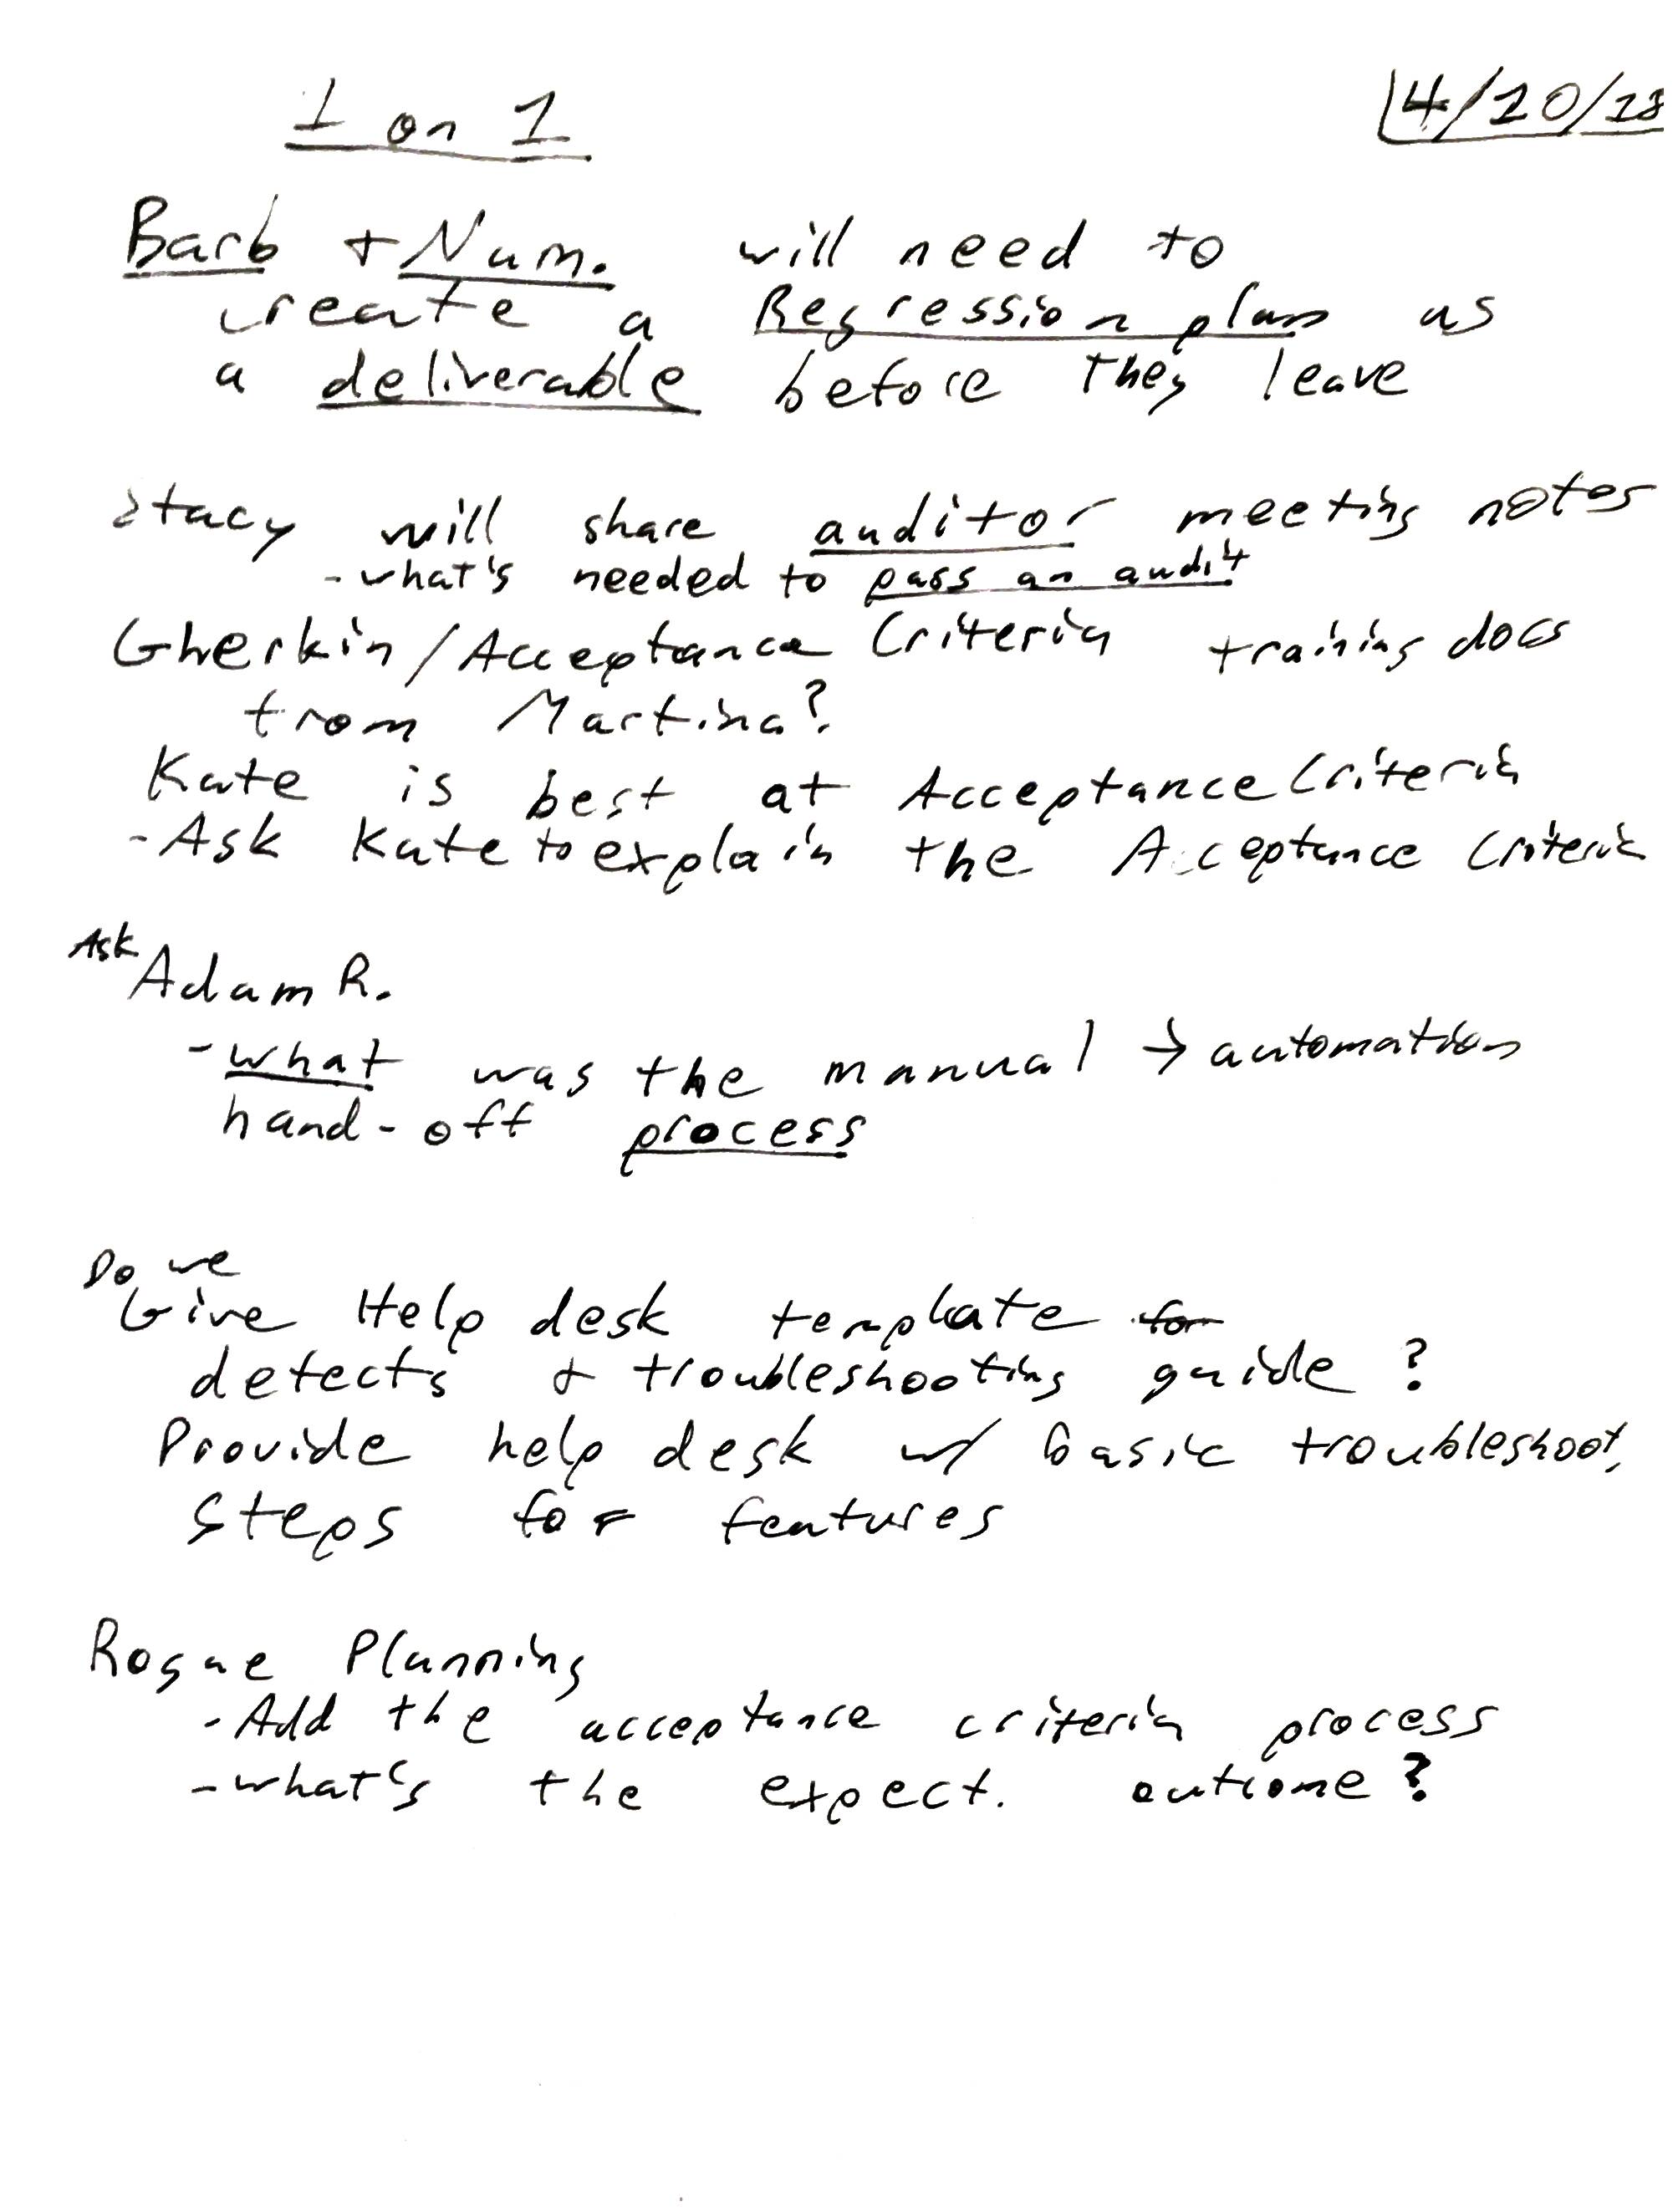 1 on 1
4/20/18
Barb + Num. will need to
create a Regression plan as
a deliverable before they leave
Stacy will share auditor meeting notes
- what's needed to pass an audit
Gherkin/Acceptance Criteria training docs
from Martina?
Kate is best at Acceptance Criteria
- Ask Kate to explain the Acceptance Criteria
Ask
Adam R.
- what was the manual → automation
hand-off process
Do we
Give Help desk template for
defects + troubleshooting guide?
Provide help desk w/ basic troubleshoot.
Steps for features
Rogue Planning
- Add the acceptance criteria process
- what's the expect. outcome?